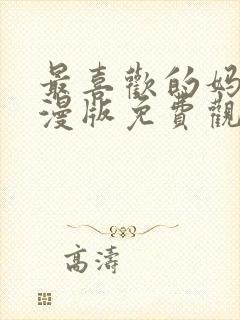 最喜歡的妈
漫版免費觀
高濤